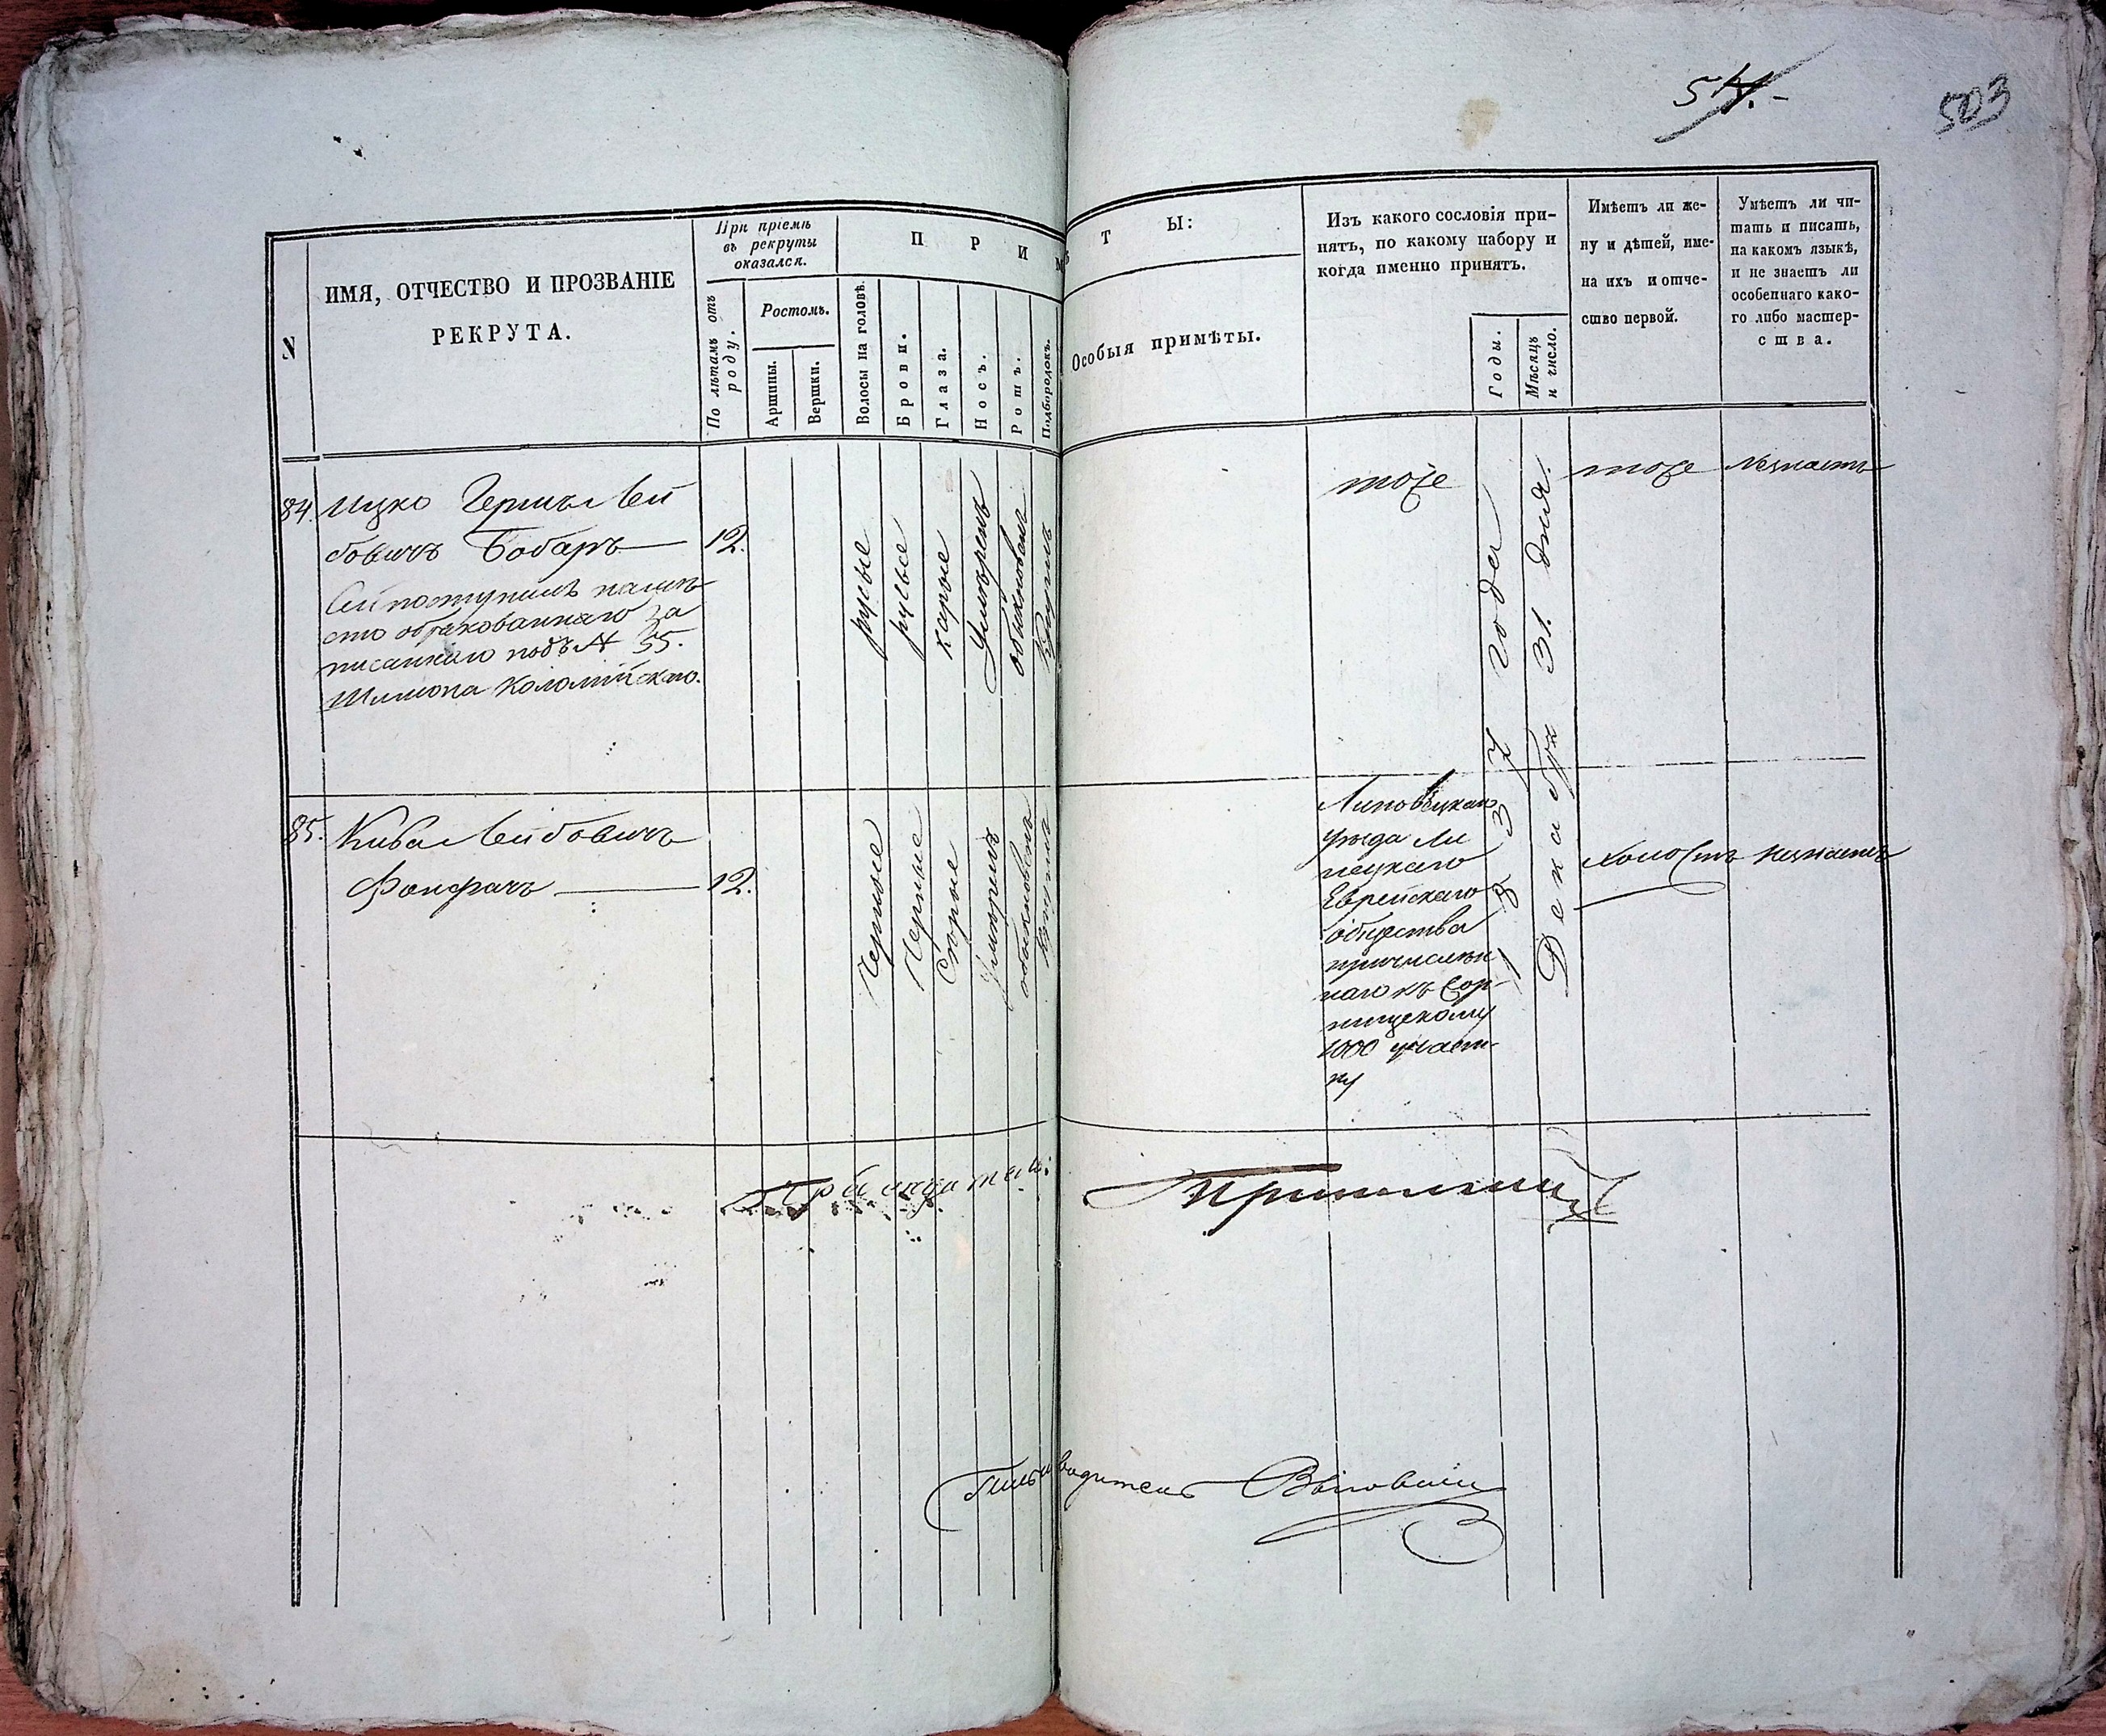 503
N
ИМЯ, ОТЧЕСТВО И ПРОЗВАНІЕ
РЕКРУТА.
При пріемѣ
въ рекруты
оказался.
По лѣтамъ отъ
роду.
Ростомъ.
Аршины.
Вершки.
П Р И М Ѣ Т Ы:
Волосы на головѣ.
Брови.
Глаза.
Носъ.
Ротъ.
Подбородокъ.
Особыя примѣты.
Изъ какого сословія при-
нятъ, по какому набору и
когда именно принятъ.
Годы.
Мѣсяцъ
и число.
Имѣетъ ли же-
ну и дѣтей, име-
на ихъ и отче-
ство первой.
Умѣетъ ли чи-
тать и писать,
на какомъ языкѣ,
и не знаетъ ли
особеннаго како-
го либо мастер-
ства.
84.
Ицко Гершъ Лей
бовичъ Бобаръ
Сей поступилъ намѣ
сто обракованнаго за
писаннаго подъ N 55.
Шлиома Коломійскаго.
12.
русые
русые
карые
Умѣренъ
обыкновенъ
Круглъ
тоже
1837 года
Декабря 31. дня.
тоже
Незнаетъ
85.
Кива Лейбовичъ
Фонфачъ
12.
Черные
Черные
Сѣрые
Умѣренъ
обыкновенъ
Круглъ
Липовѣцкаго
уѣзда Ли
пецкаго
Еврейскаго
общества
причислен
наго къ Сор-
1000 участ-
ку
Холостъ
Незнаетъ